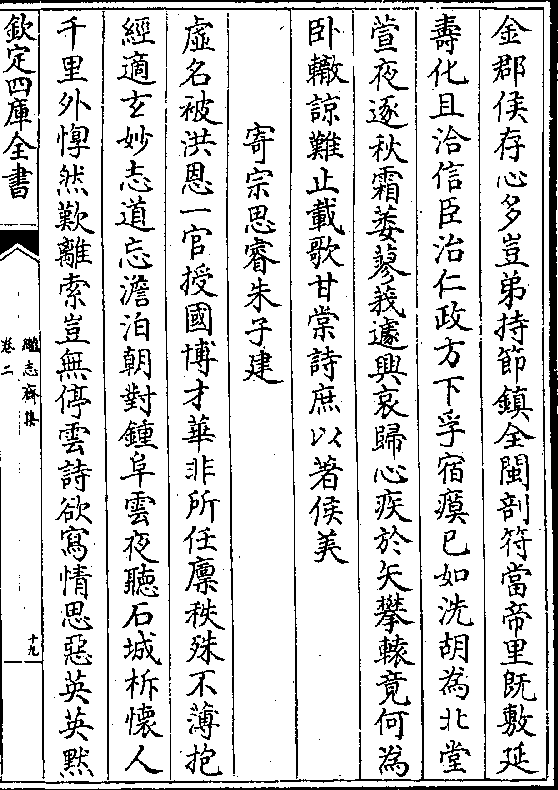 金郡侯存心多豈弟持節鎮全閩剖符當帝里既敷延
壽化且洽信臣治仁政方下孚宿瘼已如洗胡為北堂
萱夜逐秋霜萎蓼莪遽興哀歸心疾於矢攀轅竟何為
卧轍諒難止載歌甘棠詩庶以著侯美
寄宗思睿朱子建
虛名被洪恩一官授國博才華非所任廪秩殊不薄抱
經適玄妙志道忘澹泊朝對鍾阜雲夜聽石城柝懷人
千里外惸然歎離索豈無停雲詩欲寫情思惡英英黙
欽定四庫全書
志齋集
卷二
十九